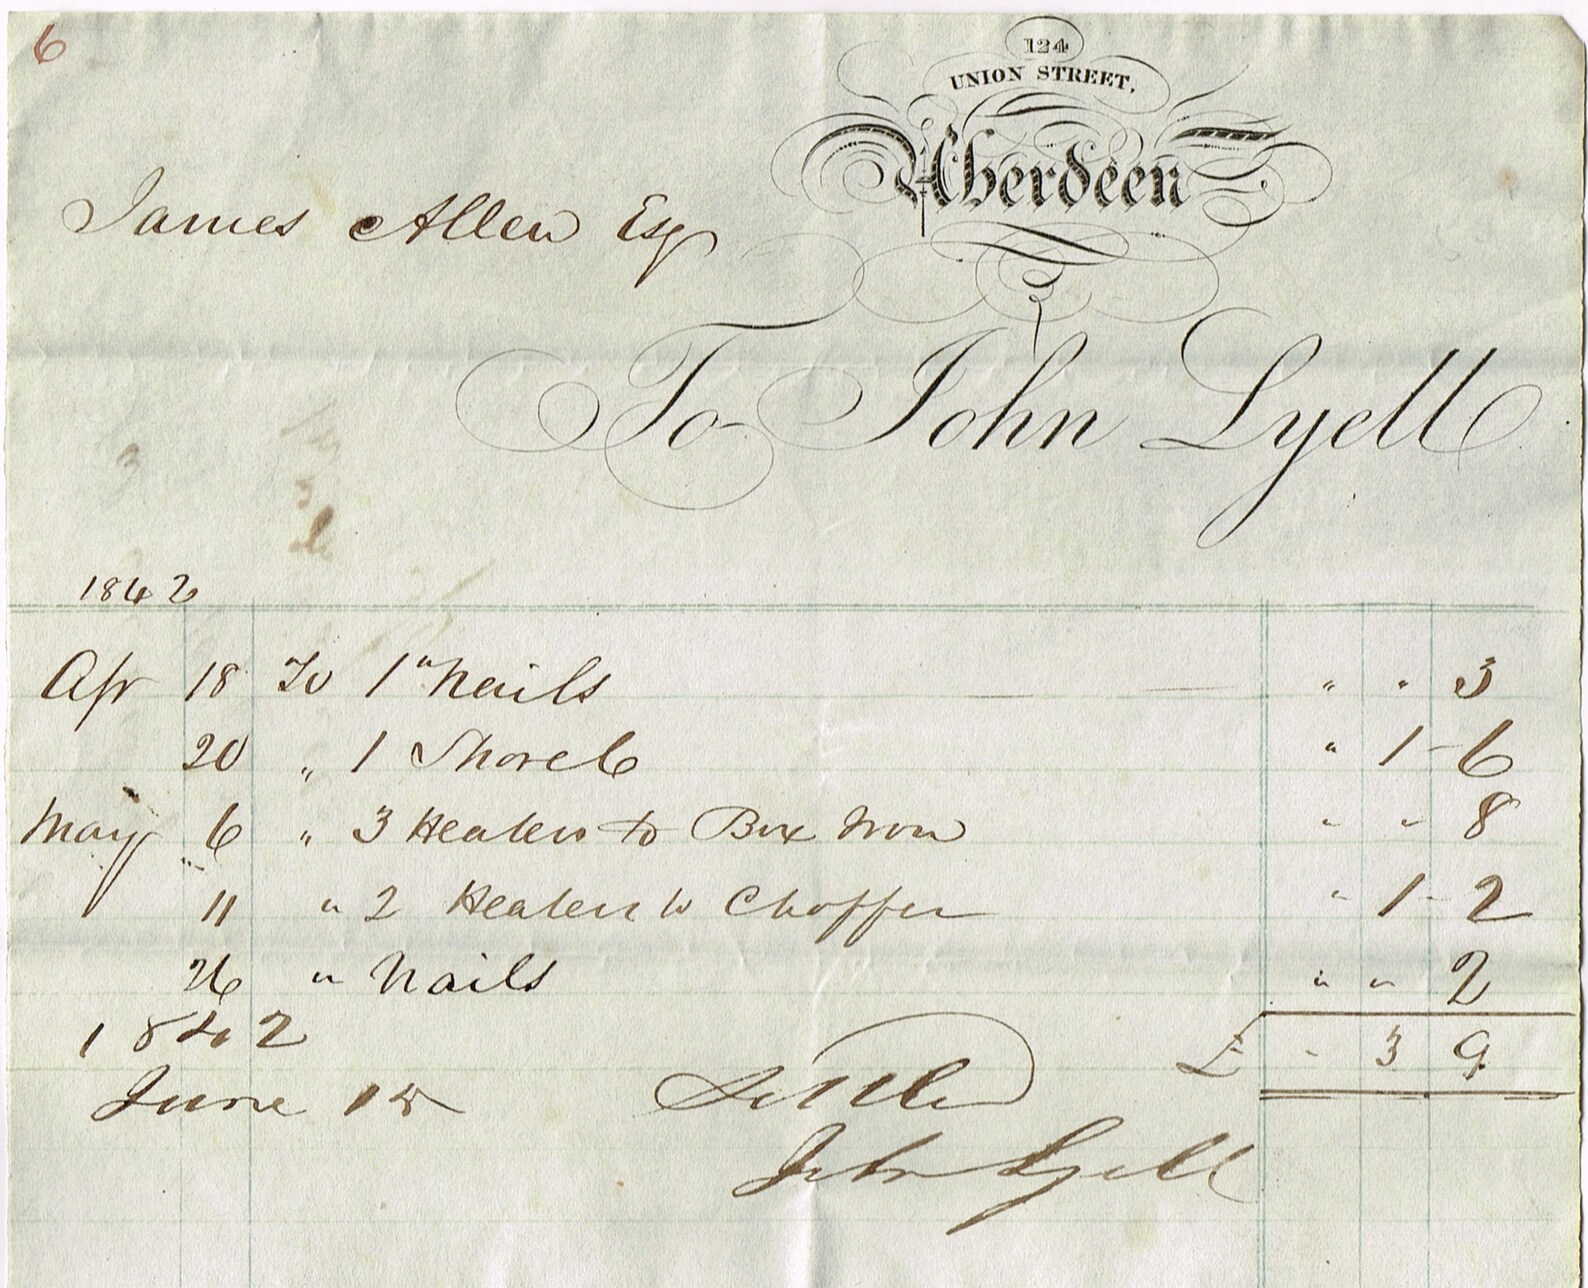 6
124
UNION STREET,
Aberdeen
James Allen Esq
To John Lyell
1842
Apr 18 To 1" Nails " " 3
20 " 1 Shovel " 1-6
May 6 " 3 Heaters to Box Iron " " 8
11 " 2 Heaters to Choffer " 1-2
26 " Nails " " 2
£ " 3 9
1842
June 15 Settled
John Lyell